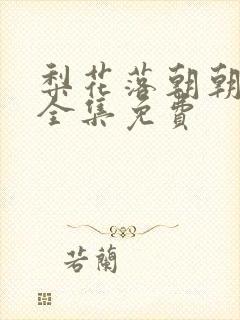 梨花落朝朝
全集免費
若蘭